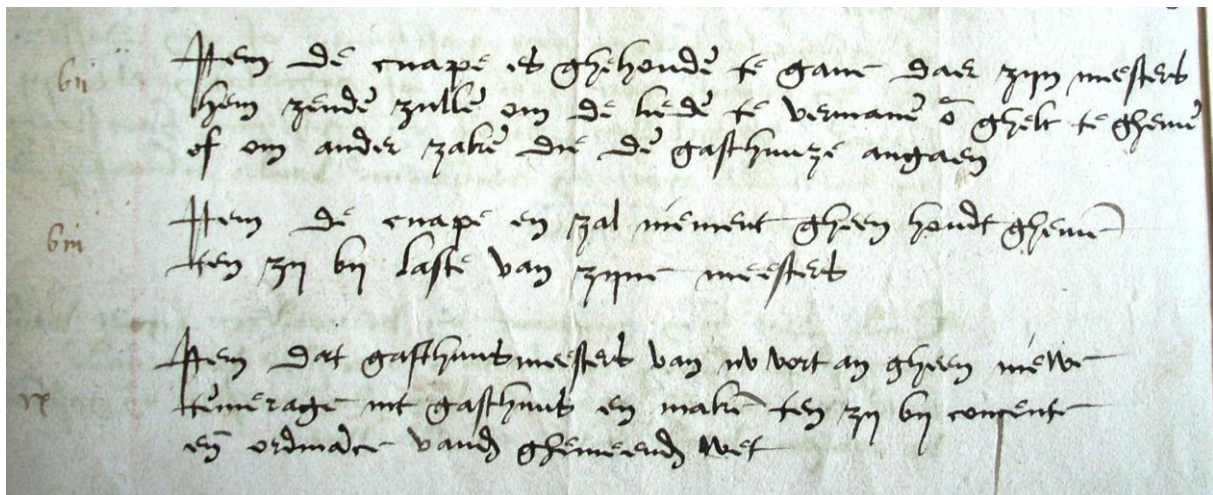 vii Item de cnape es ghehoudē te gane daer zijn meesters
hem zendē zullē om de liedē te vermanē ō ghelt te ghevē
of om ander zakē die de gasthuuze angaen
viii Item de cnape en zal niement gheen houdt ghevē
ten zij bij laste van zijne meesters
ix Item dat gasthuusmeesters van nu vort an gheen niewe
temerage int gasthuus en makē ten zij bij consente
eñ ordināce vand ghemeend wet